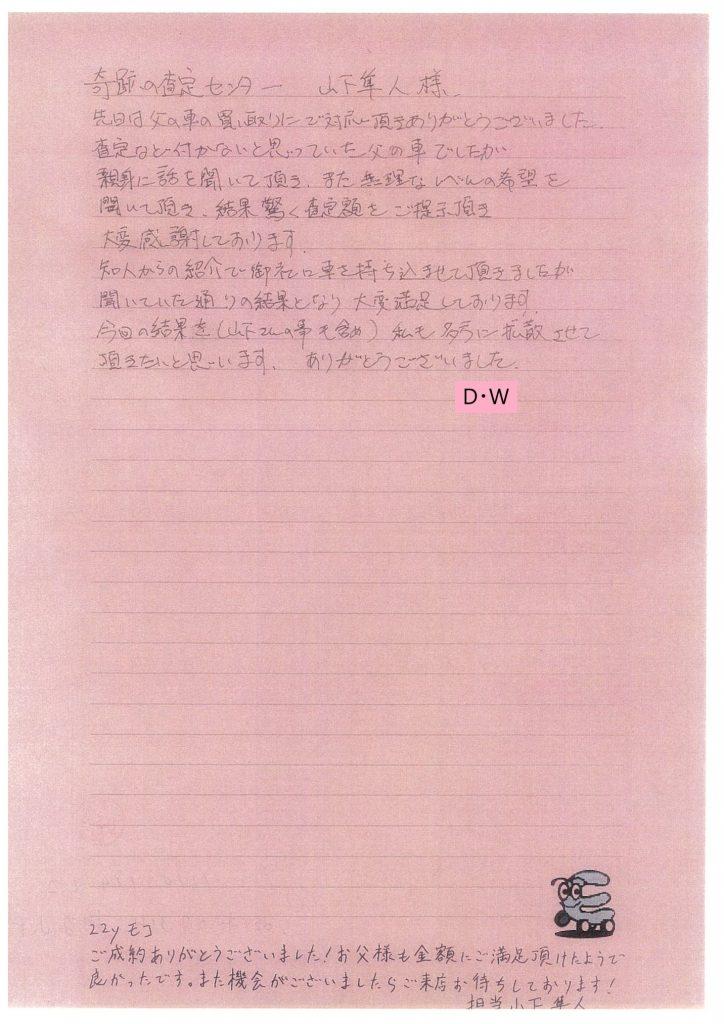 奇跡の査定センター 山下隼人様
先日は父の車の買い取りにご対応頂きありがとうございました。
査定など付かないと思っていた父の車でしたが
親身に話を聞いて頂き、また無理なレベルの希望を
聞いて頂き、結果驚く査定額をご提示頂き
大変感謝しております。
知人からの紹介で御社に車を持ち込ませて頂きましたが
聞いていた通りの結果となり大変満足しております
今回の結果を(山下さんの事も含め)私も多方に拡散させて
頂きたいと思います。ありがとうございました。
D・W
22y モコ
ご成約ありがとうございました!お父様も金額にご満足頂けたようで
良かったです。また機会がございましたらご来店お待ちしております!
担当 山下隼人